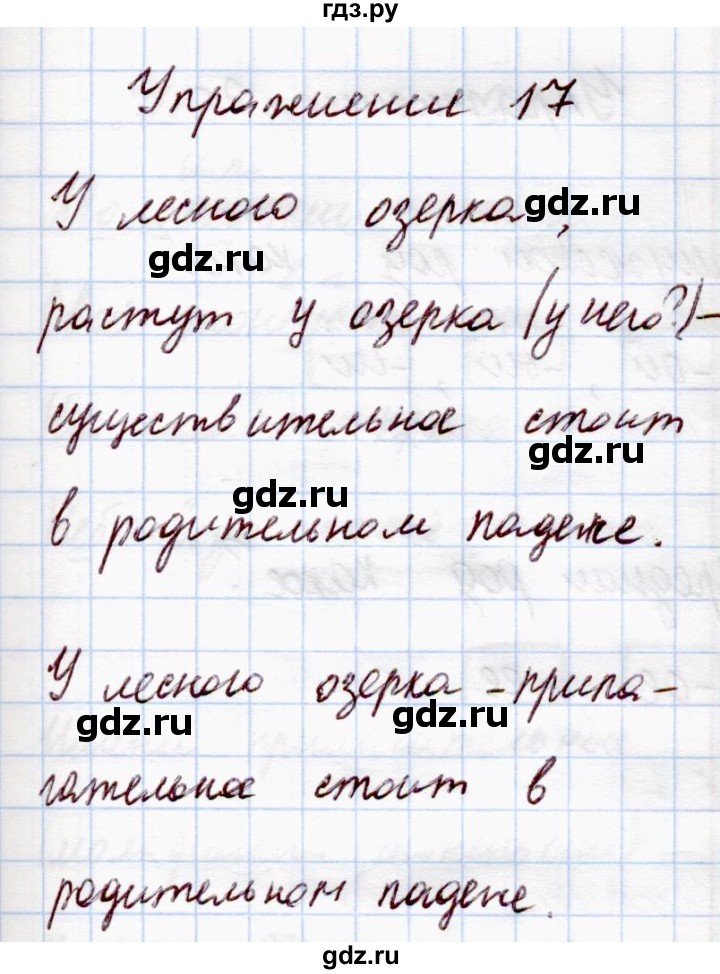 гдз.ру
Упражнение 17
У лесного озерка,
gdz.ru
gdz.ru
растут у озерка (у чего?) –
существительное стоит
gdz.ru
gdz.ru
в родительном падеже.
У лесного озерка – прила-
gdz.ru
gdz.ru
гательное стоит в
родительном падеже.
gdz.ru